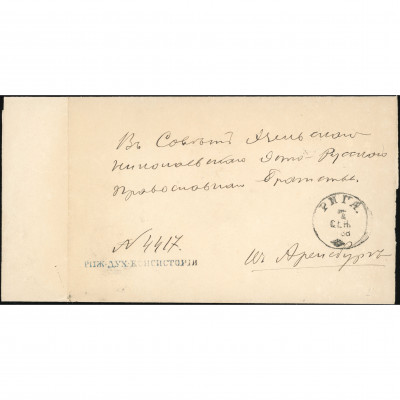 Въ Совѣтъ Эзельскаго
Николаевскаго Эсто-Русскаго
Православнаго Братства.
РИГА.
№ 4417.
РИЖ. ДУХ. КОНСИСТОРІИ
въ Аренсбургъ